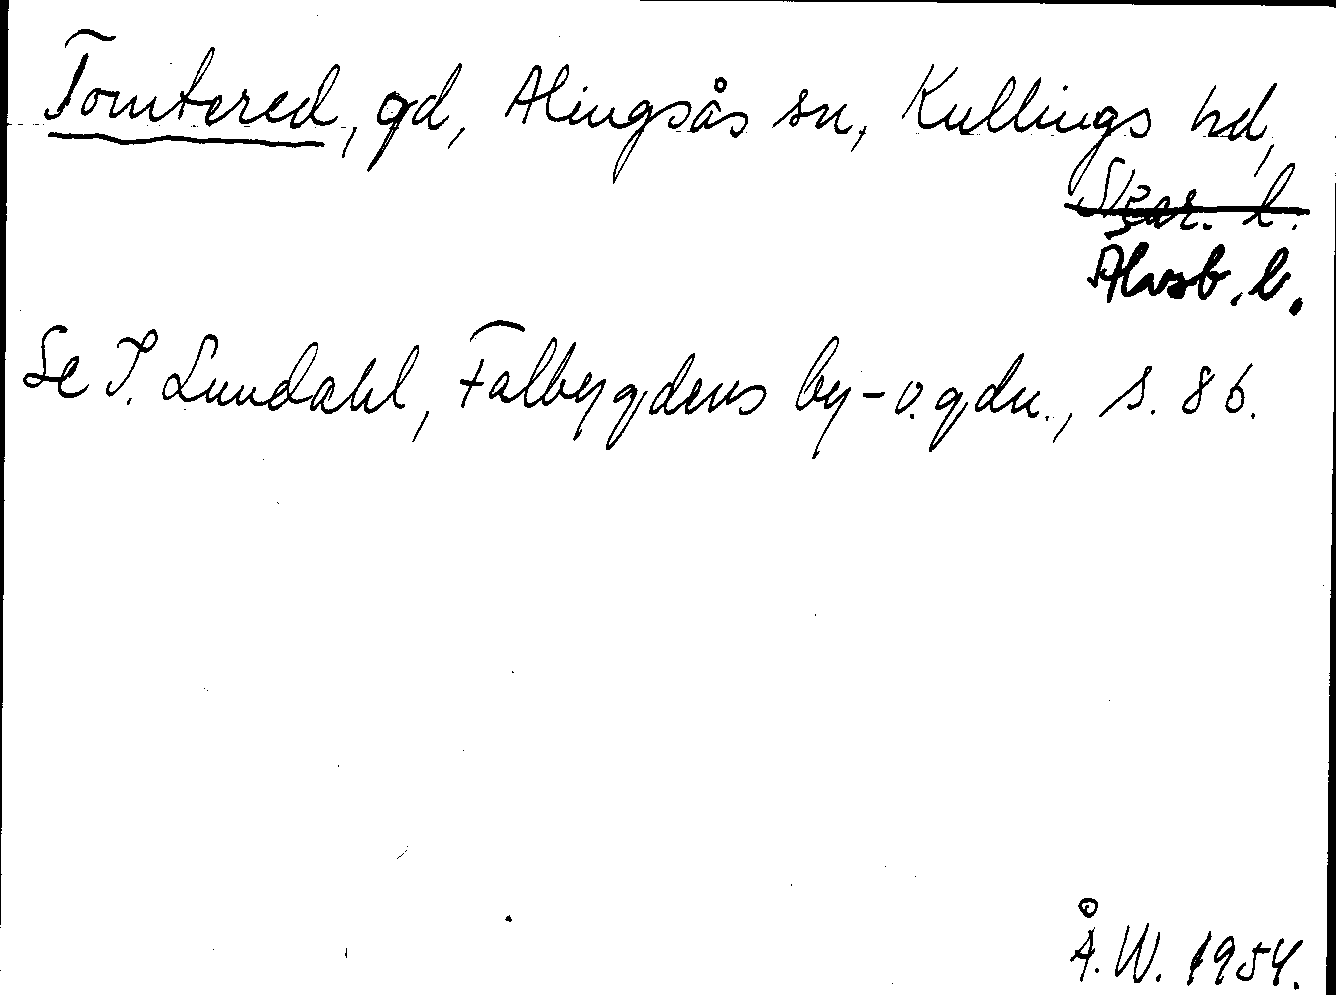 Tomtered, gd, Alingsås sn, Kullings hd,
Skar. l.
Älvsb. l.
Se I. Lundahl, Falbygdens by- o. gdn., s. 86.
Å. W. 1954.